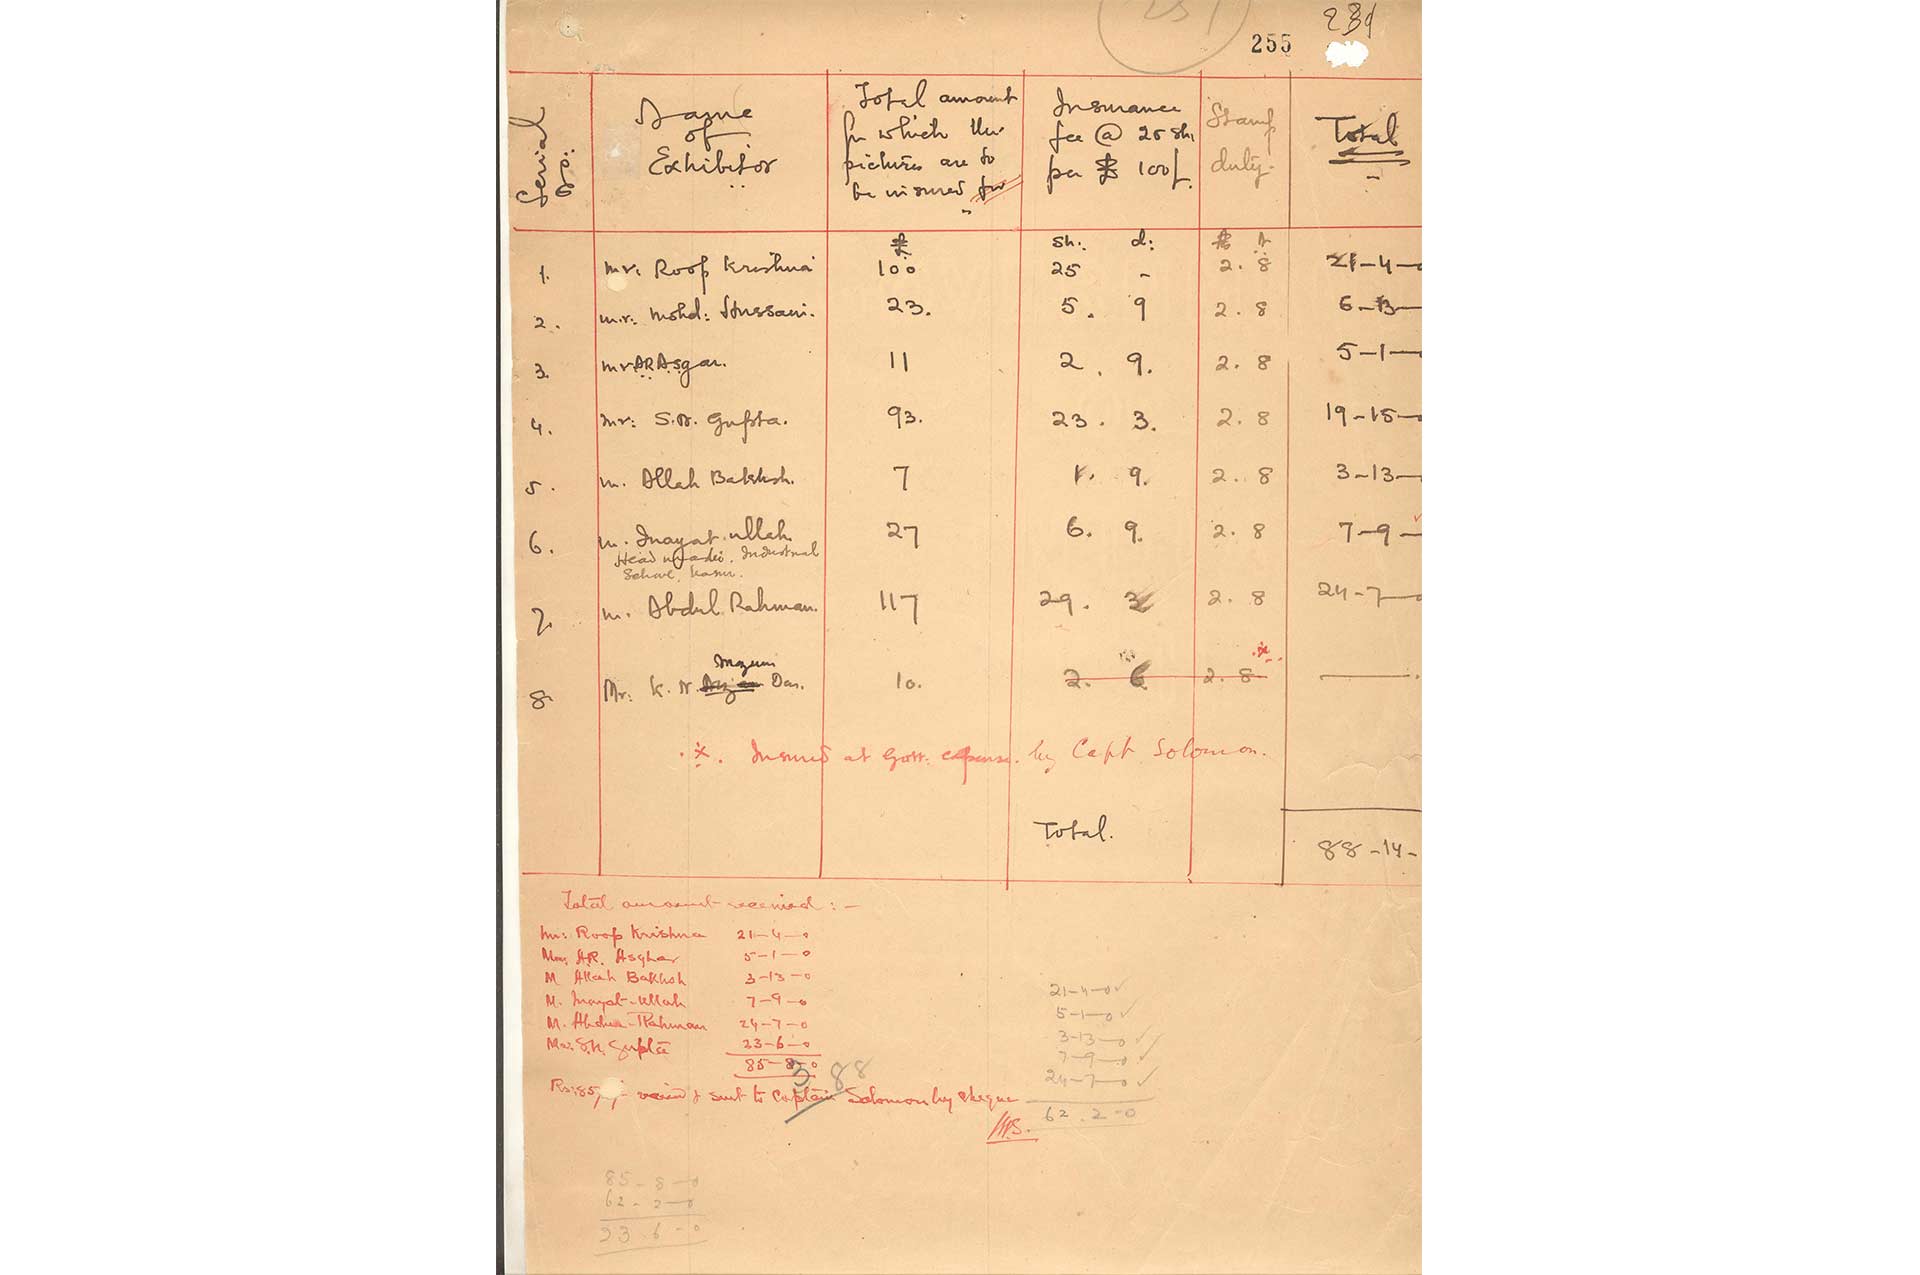 231
255
231
Serial No:
Name of Exhibitor
Total amount for which the pictures are to be insured for
Insurance fee @ 25 sh. per £ 100/.
Stamp duty.
Total
£ sh: d: Rs A
1. Mr: Roop Krishna 100 25 - 2. 8 21-4-0
2. Mr: Mohd: Hussain. 23. 5. 9 2. 8 6-13-
3. Mr AR Asgar. 11 2. 9. 2. 8 5-1-
4. Mr: S.N. Gupta. 93. 23. 3. 2. 8 19-15-0
5. M. Allah Bakhsh. 7 1. 9. 2. 8 3-13-
6. M. Inayat-ullah. 27 6. 9. 2. 8 7-9-
Head Industrial
School, Kasur.
7. M. Abdul Rahman. 117 29. 3 2. 8 24-7-0
Mozum
8. Mr: K. N. Dar. 10. 2. 6 2. 8 *
*. Insured at Govt: expense. by Capt. Solomon.
Total. 88-14-
Total amount received :-
Mr: Roop Krishna 21-4-0
Mr: A.R. Asghar 5-1-0
M. Allah Bakhsh 3-13-0
M. Inayat-ullah 7-9-0
M. Abdur-Rahman 24-7-0
Mr: S.N. Gupta 23-6-0
85-8-0
3 88
Rs: 85/ & sent to Captain Solomon by cheque
21-4-0 ✓
5-1-0 ✓
3-13-0 ✓
7-9-0 ✓
24-7-0 ✓
62.2-0
85-8-0
62-2-0
23 6-0